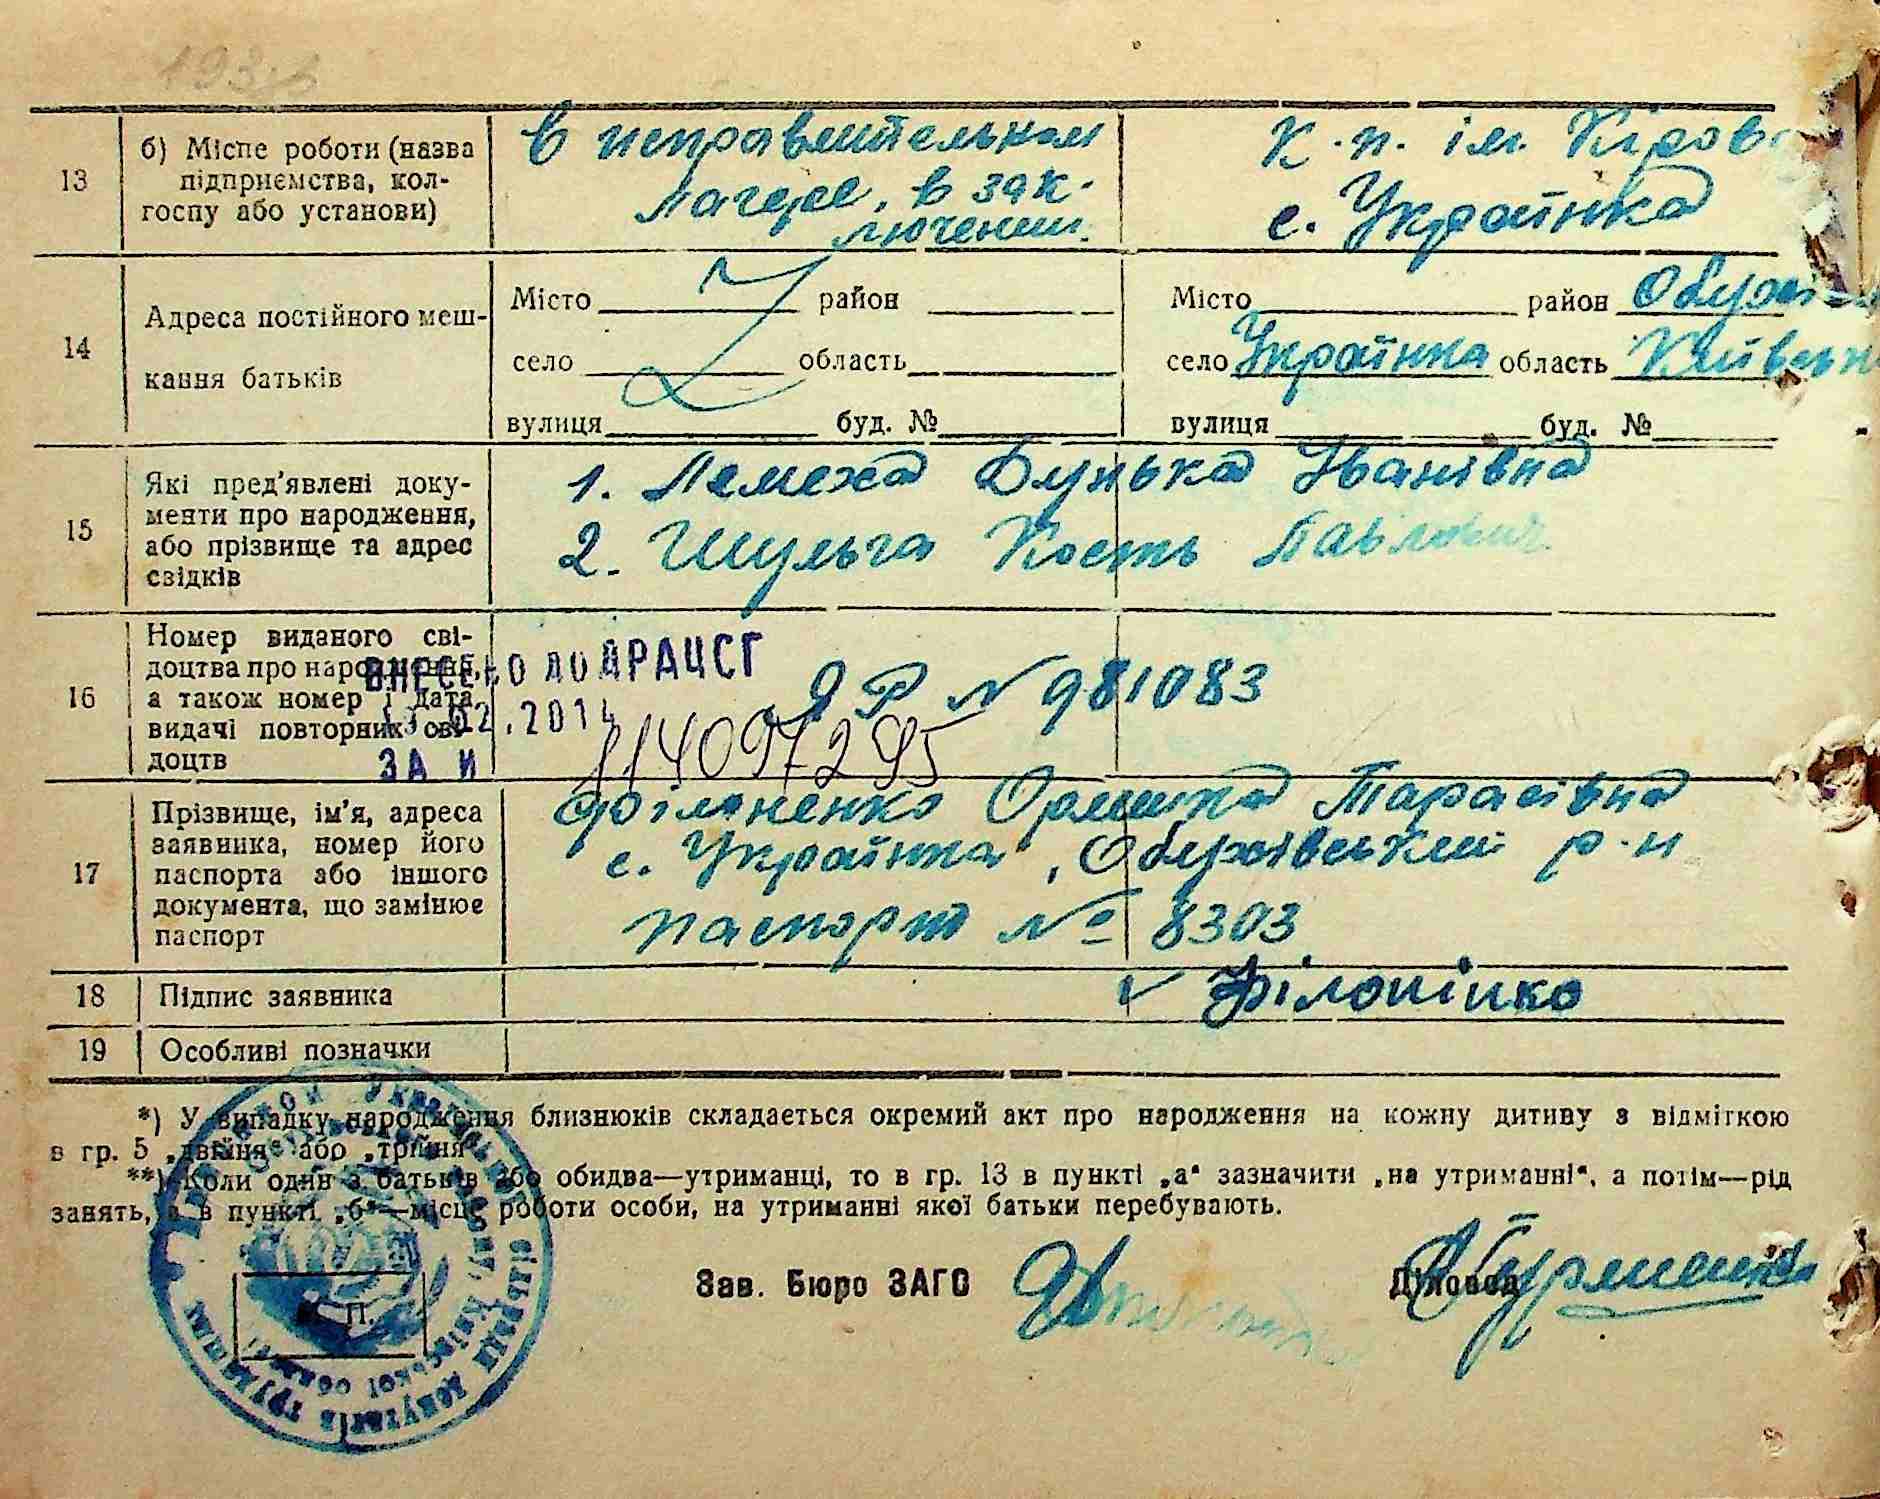 13
б) Місце роботи (назва
підприємства, кол-
госпу або установи)
в исправительном
лагере, в зак-
лючении.
к.п. ім. Кірова
с. Українка
14
Адреса постійного меш-
кання батьків
Місто район
село область
вулиця буд. №
Місто район Обухів
село Українка область Київськ
вулиця буд. №
15
Які пред'явлені доку-
менти про народження,
або прізвище та адрес
свідків
1. Лемеха Дунька Іванівна
2. Шульга Кость Павлович
16
Номер виданого сві-
доцтва про народження,
а також номер і дата
видачі повторних сві-
доцтв
ВНЕСЕНО ДО ДРАЦСГ
02.2014
ЗА №
114097295
ЯР № 981083
17
Прізвище, ім'я, адреса
заявника, номер його
паспорта або іншого
документа, що замінює
паспорт
Філоненко Оришка Тарасівна
с. Українка, Обухівський р-н
паспорт № 8303
18
Підпис заявника
Філонінко
19
Особливі позначки
*) У випадку народження близнюків складається окремий акт про народження на кожну дитину з відміткою
в гр. 5 „двійня“ або „трійня“
**) Коли один з батьків або обидва—утриманці, то в гр. 13 в пункті „а“ зазначити „на утриманні“, а потім—рід
занять, а в пункті „б“—місце роботи особи, на утриманні якої батьки перебувають.
Зав. Бюро ЗАГС
Діловод
М. П.
сільради депутатів трудящих
Київської області